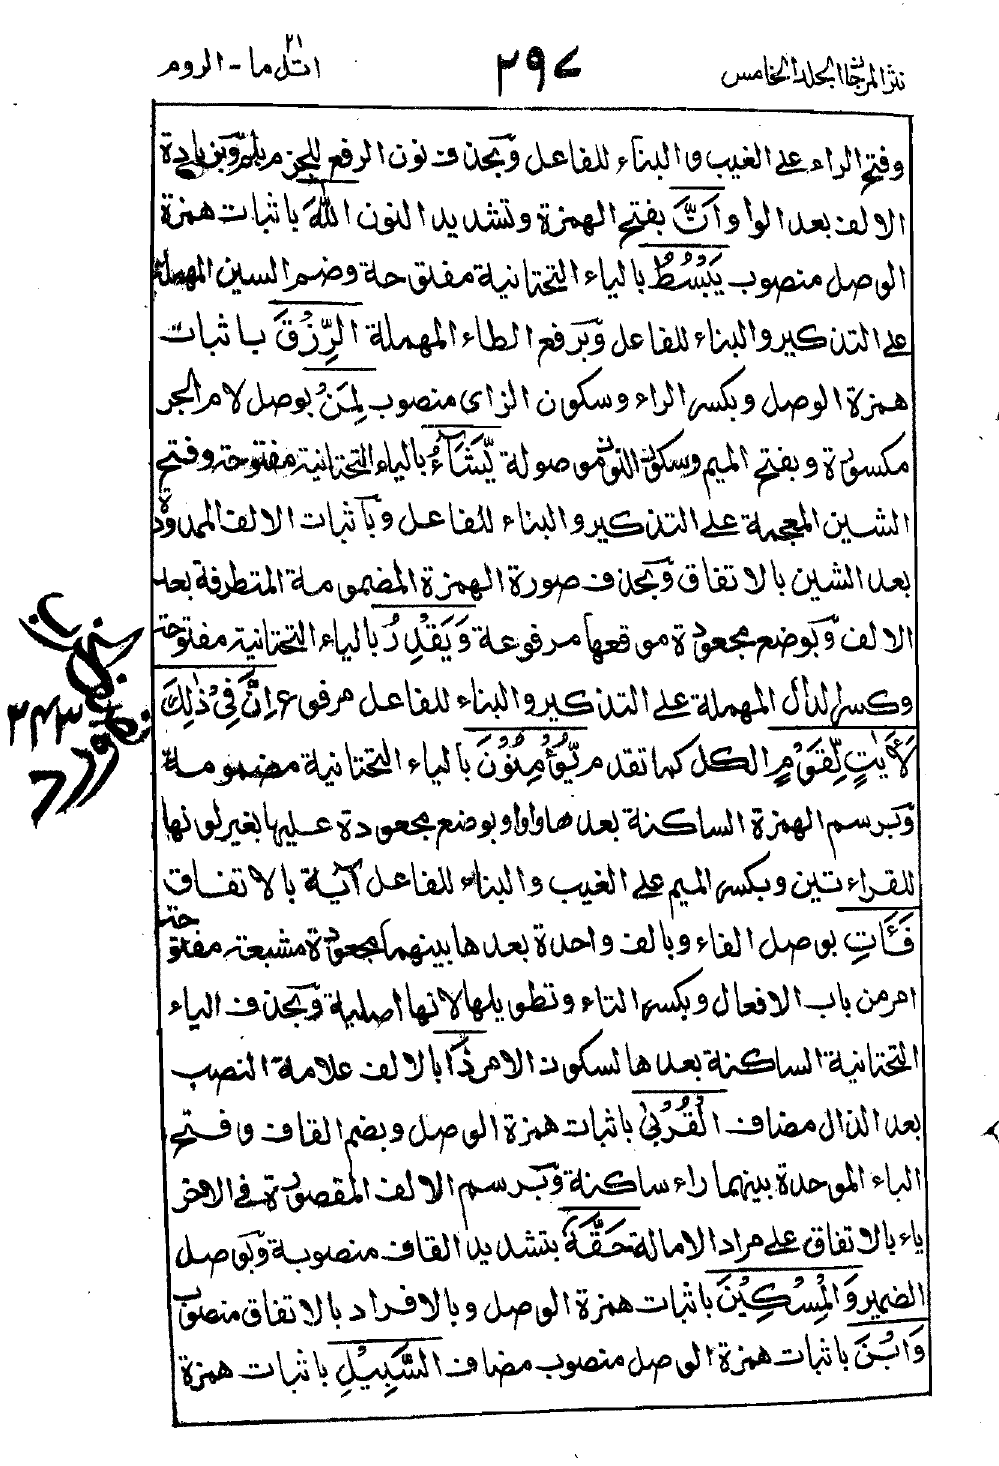 نثر المرجان الجلد الخامس
٢٩٧
اتل ما - الروم
٢١
وفتح الراء على الغيب والبناء للفاعل وبحذف نون الرفع للجزم وبزيادة
الالف بعد الواو اَنَّ بفتح الهمزة وتشديد النون اللهَ باثبات همزة
الوصل منصوب يَبْسُطُ بالياء التحتانية مفتوحة وضم السين المهملة
على التذكير والبناء للفاعل وبرفع الطاء المهملة الرِّزْقَ باثبات
همزة الوصل وبكسر الراء وسكون الزاى منصوب لِمَنْ بوصل لام الجر
مكسورة وبفتح الميم وسكون النون موصولة يَّشَآءُ بالياء التحتانية مفتوحة وفتح
الشين المعجمة على التذكير والبناء للفاعل وباثبات الالف الممدودة
بعد الشين بالاتفاق وبحذف صورة الهمزة المضمومة المتطرفة بعد
الالف وبوضع مجعودة موقعها مرفوعة وَيَقْدِرُ بالياء التحتانية مفتوحة
وكسر الدال المهملة على التذكير والبناء للفاعل مرفوع اِنَّ فِيْ ذٰلِكَ
لَاٰيٰتٍ لِّقَوْمٍ الكل كما تقدم يُّؤْمِنُوْنَ بالياء التحتانية مضمومة
وبرسم الهمزة الساكنة بعدها واوا وبوضع مجعودة عليها بغير لونها
للقراءتين وبكسر الميم على الغيب والبناء للفاعل آية بالاتفاق
فَـَٔاتِ بوصل الفاء وبالف واحدة بعدها بينهما مجعودة مشبعة مفتوحة
امر من باب الافعال وبكسر التاء وتطويلها لانها اصلية وبحذف الياء
التحتانية الساكنة بعدها لسكون الامر ذَا بالالف علامة النصب
بعد الذال مضاف الْقُرْبٰى باثبات همزة الوصل وبضم القاف وفتح
الباء الموحدة بينهما راء ساكنة وبرسم الالف المقصورة في الاخر
ياء بالاتفاق على مراد الامالة حَقَّهٗ بتشديد القاف منصوبة وبوصل
الضمير وَالْمِسْكِيْنَ باثبات همزة الوصل وبالافراد بالاتفاق منصوب
وَابْنَ باثبات همزة الوصل منصوب مضاف السَّبِيْلِ باثبات همزة